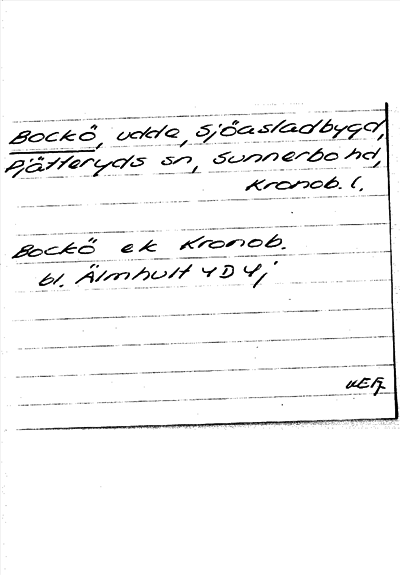 Bockö, udde, Sjöasladbygd,
Pjätteryds sn, Sunnerbo hd,
Kronob. l.
Bockö ek Kronob.
bl. Älmhult 4D 4j